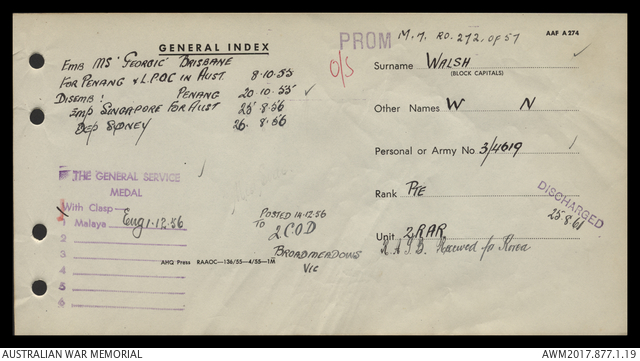 GENERAL INDEX
PROM
M.7. RO. 272. OF 57
AAF A 274
EMB MS 'GEORGIC' BRISBANE
FOR PENANG & L.POC IN AUST 8·10·55
DISEMB: PENANG 20·10·55
EMB SINGAPORE FOR AUST 25·8·56
DEP SYDNEY 26·8·56
O/S
Surname WALSH
(BLOCK CAPITALS)
Other Names W N
Personal or Army No. 3/4619
Rank PTE
DISCHARGED
25·8·61
Unit 2RAR
R.A.I.B. Reserved for Korea
THE GENERAL SERVICE
MEDAL
With Clasp
1 Malaya Eng 1·12·56
2
3
4
5
6
POSTED 14·12·56
TO 2 C.O.D
BROADMEADOWS
VIC
AHQ Press RAAOC—136/55—4/55—1M
AUSTRALIAN WAR MEMORIAL
AWM2017.877.1.19